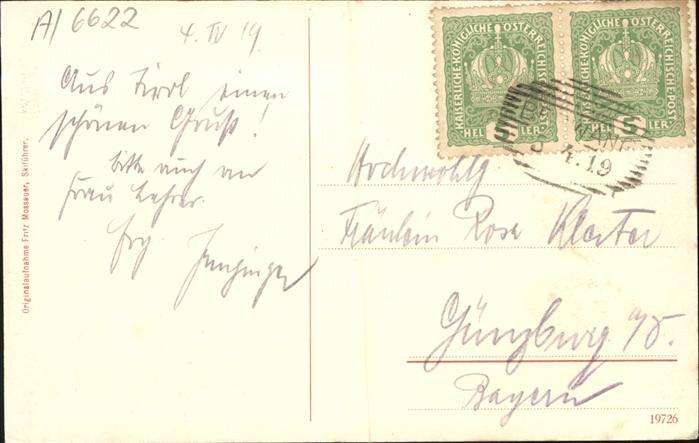 A/ 6622
4. IV 19.
Aus Tirol einen
schönen Gruß!
bitte auch an
Frau Lehrer.
KAISERLICHE KÖNIGLICHE ÖSTERREICHISCHE POST
5 HELLER 5
KAISERLICHE KÖNIGLICHE ÖSTERREICHISCHE POST
HELLER 5
4.19
Hochwohlg
Fräulein Rosa
Günzburg a/D.
Bayern
Originalaufnahme Fritz Mossauer, Skiführer.
19726